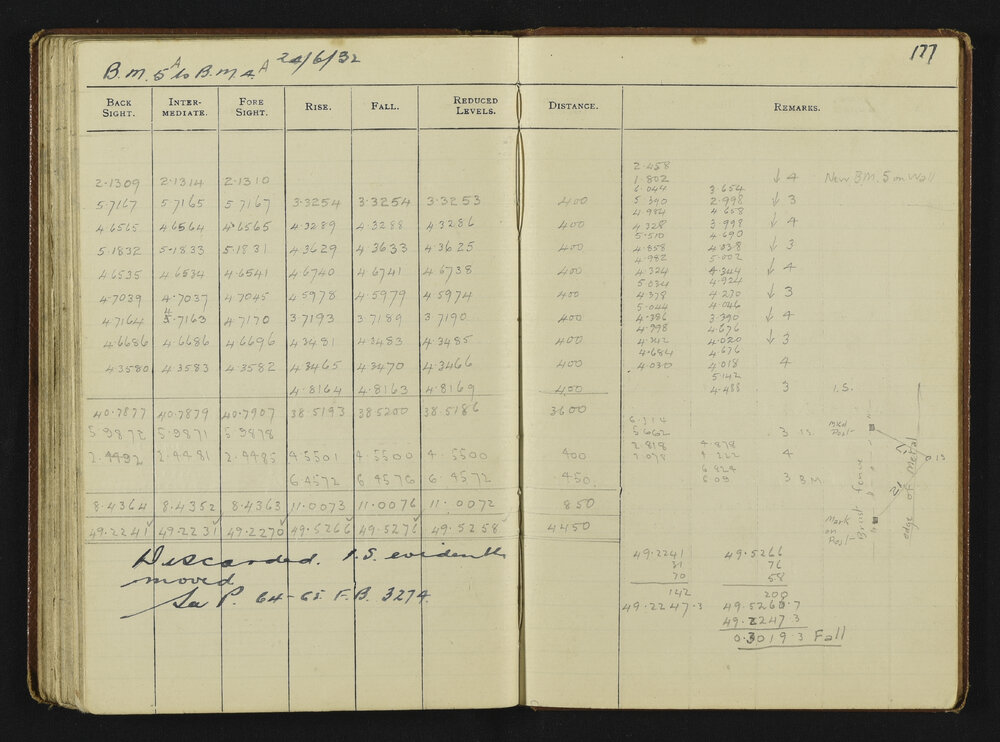 B.M. 5A to B.M. 4A 24/6/32
177
BACK SIGHT. INTER-MEDIATE. FORE SIGHT. RISE. FALL. REDUCED LEVELS. DISTANCE. REMARKS.
2.458
2.1309 2.1314 2.1310 1.802 ↓ 4 New B.M. 5 on Wall
6.044 3.654
5.7167 5.7165 5.7167 3.3254 3.3254 3.3253 400 5.390 2.998 ↓ 3
4.984 4.658
4.6565 4.6564 4.6565 4.3289 4.3288 4.3286 400 4.328 3.998 ↓ 4
5.510 4.690
5.1832 5.1833 5.1831 4.3629 4.3633 4.3625 400 4.858 4.038 ↓ 3
4.982 5.002
4.6535 4.6534 4.6541 4.6740 4.6741 4.6738 400 4.324 4.344 ↓ 4
5.034 4.924
4.7039 4.7037 4.7045 4.5978 4.5979 4.5974 400 4.378 4.270 ↓ 3
5.044 4.046
4.7164 4.7163 4.7170 3.7193 3.7189 3.7190 400 4.386 3.390 ↓ 4
4.998 4.676
4.6686 4.6686 4.6696 4.3481 4.3483 4.3485 400 4.342 4.020 ↓ 3
4.684 4.676
4.3580 4.3583 4.3582 4.3465 4.3470 4.3466 400 4.030 4.018 4
5.142
4.8164 4.8163 4.8169 400 4.488 3 I.S.
40.7877 40.7879 40.7907 38.5193 38.5200 38.5186 3600
6.312
5.9872 5.9871 5.9878 5.662 3 I.S. Mkd Post
2.818 4.878
2.4492 2.4481 2.4485 4.5501 4.5500 4.5500 400 2.078 4.222 4
6.824
6.4572 6.4576 6.4572 450. 6.09 3 B.M
8.4364 8.4352 8.4363 11.0073 11.0076 11.0072 850
49.2241 49.2231 49.2270 49.5266 49.5276 49.5258 4450
Mark on Post
Brush fence
edge of Metal
Discarded. I.S. evidently
moved
See P. 64-65 F.B. 3274.
49.2241 49.5266
31 76
70 58
142 200
49.2247.3 49.5266.7
49.2247.3
0.3019.3 Fall